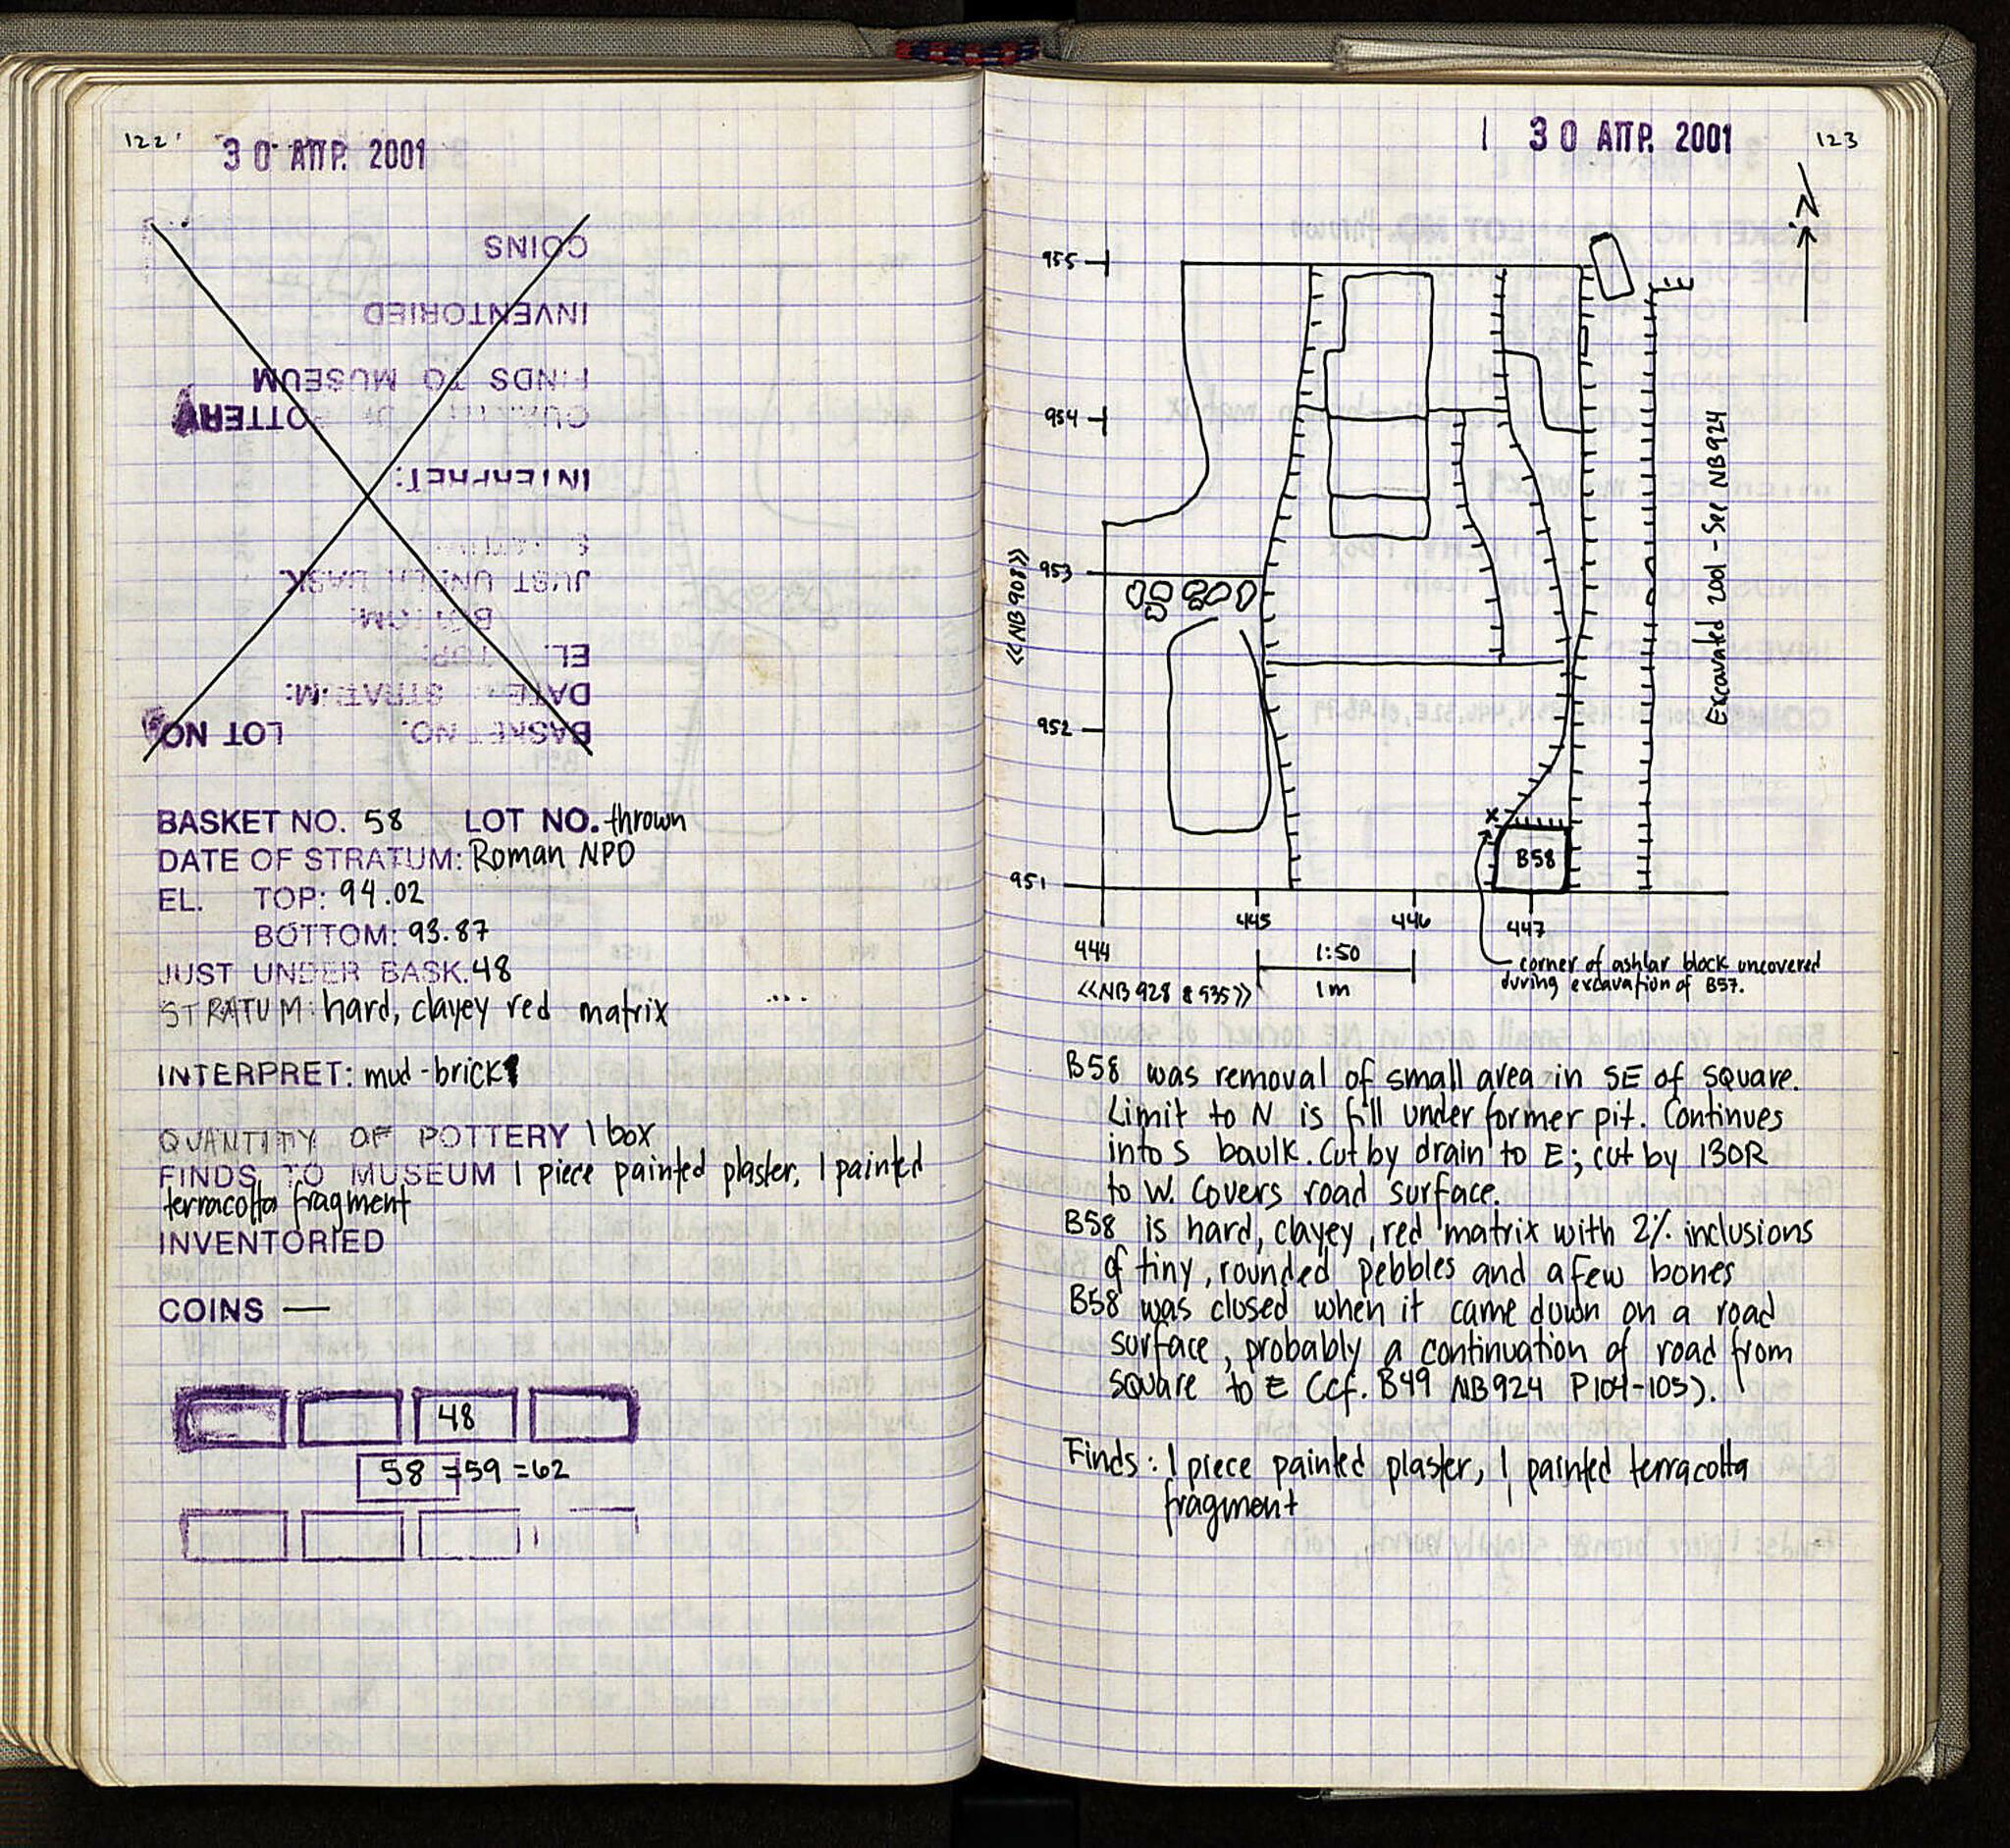 122
30 ΑΠΡ. 2001
COINS
INVENTORIED
FINDS TO MUSEUM
POTTERY
INTERPRET:
JUST UNDER BASK.
BOTTOM:
EL. TOP:
DATE STRATUM:
BASKET NO. LOT NO.
BASKET NO. 58 LOT NO. thrown
DATE OF STRATUM: Roman NPD
EL. TOP: 94.02
BOTTOM: 93.87
JUST UNDER BASK. 48
STRATUM: hard, clayey red matrix
INTERPRET: mud-brick
QUANTITY OF POTTERY 1 box
FINDS TO MUSEUM 1 piece painted plaster, 1 painted
terracotta fragment
INVENTORIED
COINS —
48
58 =59 =62
30 ΑΠΡ. 2001
123
N
955
954
953
952
951
<<NB 908>>
Excavated 2001 - See NB924
x
B58
444
445
446
447
1:50
1m
<<NB 928 & 935>>
corner of ashlar block uncovered
during excavation of B57.
B58 was removal of small area in SE of square.
Limit to N is fill under former pit. Continues
into S baulk. Cut by drain to E; cut by 130R
to W. Covers road surface.
B58 is hard, clayey, red matrix with 2% inclusions
of tiny, rounded pebbles and a few bones
B58 was closed when it came down on a road
surface, probably a continuation of road from
square to E (cf. B49 NB924 P104-105).
Finds: 1 piece painted plaster, 1 painted terracotta
fragment